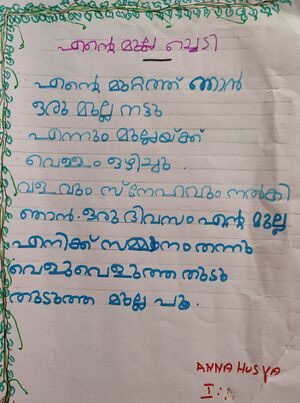 എന്റെ മുല്ല ചെടി
എന്റെ മുറ്റത്ത് ഞാൻ
ഒരു മുല്ല നട്ടു
എന്നും മുല്ലയ്ക്ക്
വെള്ളം ഒഴിച്ചു.
വളവും സ്നേഹവും നൽകി
ഞാൻ. ഒരു ദിവസം എന്റെ മുല്ല
എനിക്ക് സമ്മാനം തന്നു
വെളുവെളുത്ത തുടു
തുടുത്ത മുല്ല പൂ.
ANNA HUSYA